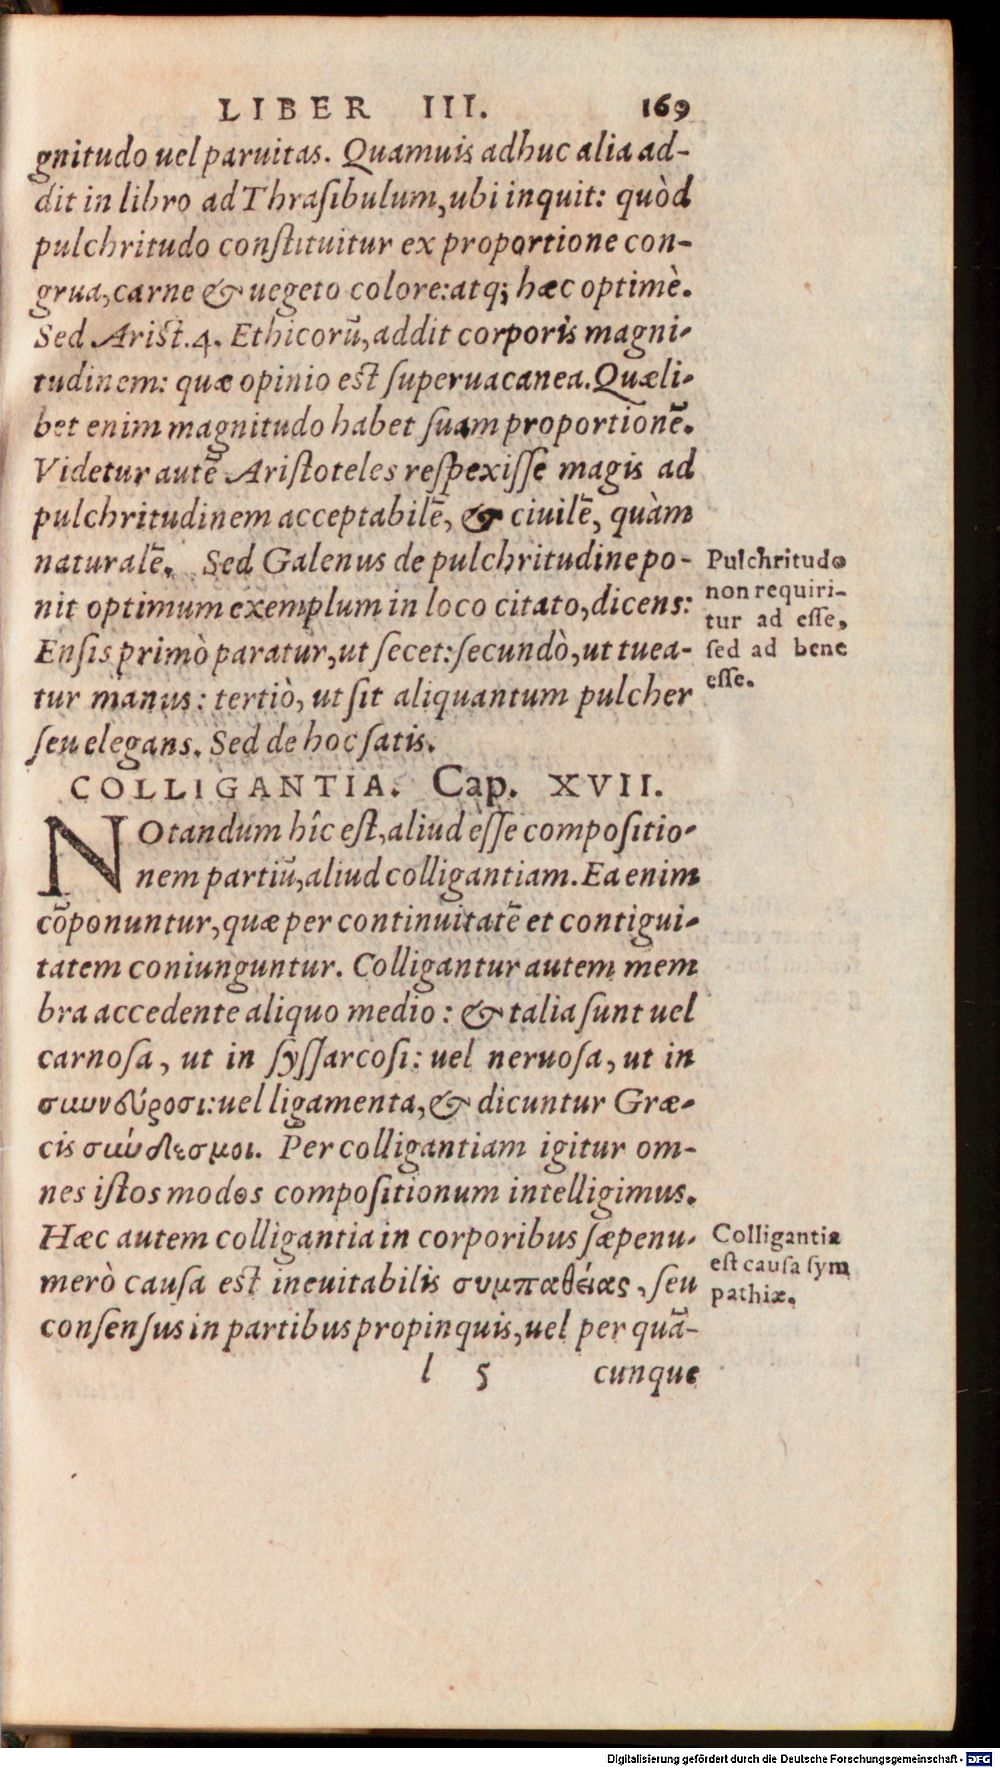 LIBER III. 169
gnitudo uel paruitas. Quamuis adhuc alia ad-
dit in libro ad Thraſibulum, ubi inquit: quòd
pulchritudo conſtituitur ex proportione con-
grua, carne & uegeto colore: atq; hæc optimè.
Sed Ariſt. 4. Ethicorū, addit corporis magni-
tudinem: quæ opinio eſt ſuperuacanea. Quæli-
bet enim magnitudo habet ſuam proportionē.
Videtur autē Ariſtoteles reſpexiſſe magis ad
pulchritudinem acceptabilē, & ciuilē, quàm
naturalē. Sed Galenus de pulchritudine po-
nit optimum exemplum in loco citato, dicens:
Enſis primò paratur, ut ſecet: ſecundò, ut tuea-
tur manus: tertiò, ut ſit aliquantum pulcher
ſeu elegans. Sed de hoc ſatis.
Pulchritudo
non requiri-
tur ad eſſe,
ſed ad bene
eſſe.
COLLIGANTIA. Cap. XVII.
NOtandum hîc eſt, aliud eſſe compoſitio-
nem partiū, aliud colligantiam. Ea enim
cōponuntur, quæ per continuitatē et contigui-
tatem coniunguntur. Colligantur autem mem
bra accedente aliquo medio: & talia ſunt uel
carnoſa, ut in ſyſſarcoſi: uel neruoſa, ut in
συννδύροσι: uel ligamenta, & dicuntur Græ-
cis σύνδεσμοι. Per colligantiam igitur om-
nes iſtos modos compoſitionum intelligimus.
Hæc autem colligantia in corporibus ſæpenu-
merò cauſa eſt ineuitabilis συμπαθείας, ſeu
conſenſus in partibus propinquis, uel per quā-
Colligantia
eſt cauſa ſym
pathiæ.
l 5 cunque
Digitalisierung gefördert durch die Deutsche Forschungsgemeinschaft - DFG